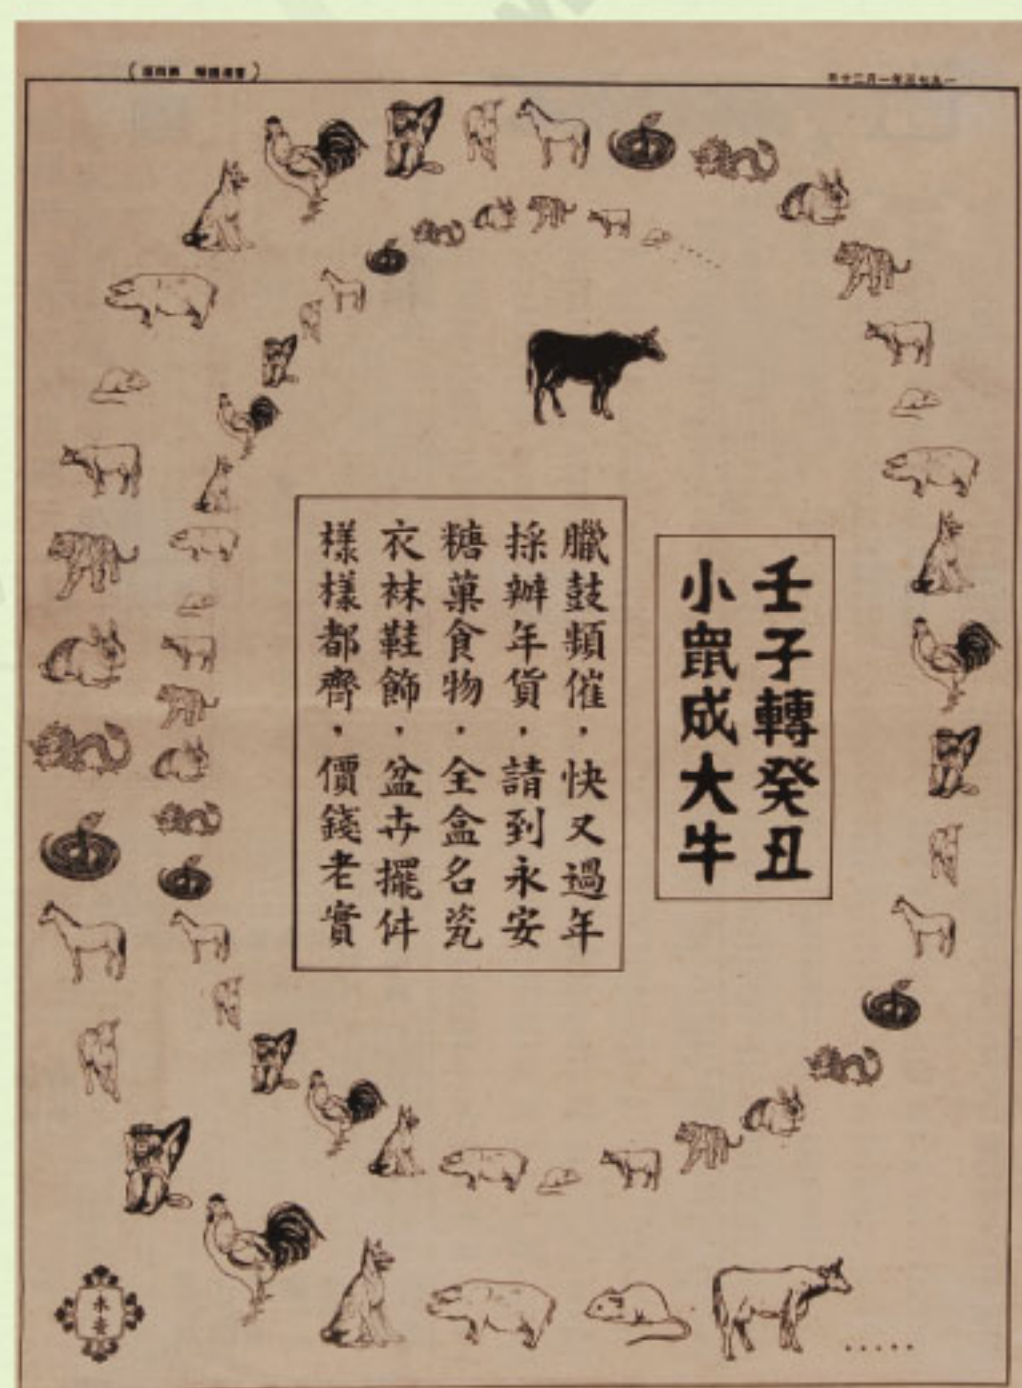 一九七三年一月二十日
壬子轉癸丑
小鼠成大牛
臘鼓頻催，快又過年
採辦年貨，請到永安
糖菓食物，全盒名瓷
衣袜鞋飾，盆卉擺件
樣樣都齊，價錢老實
永安